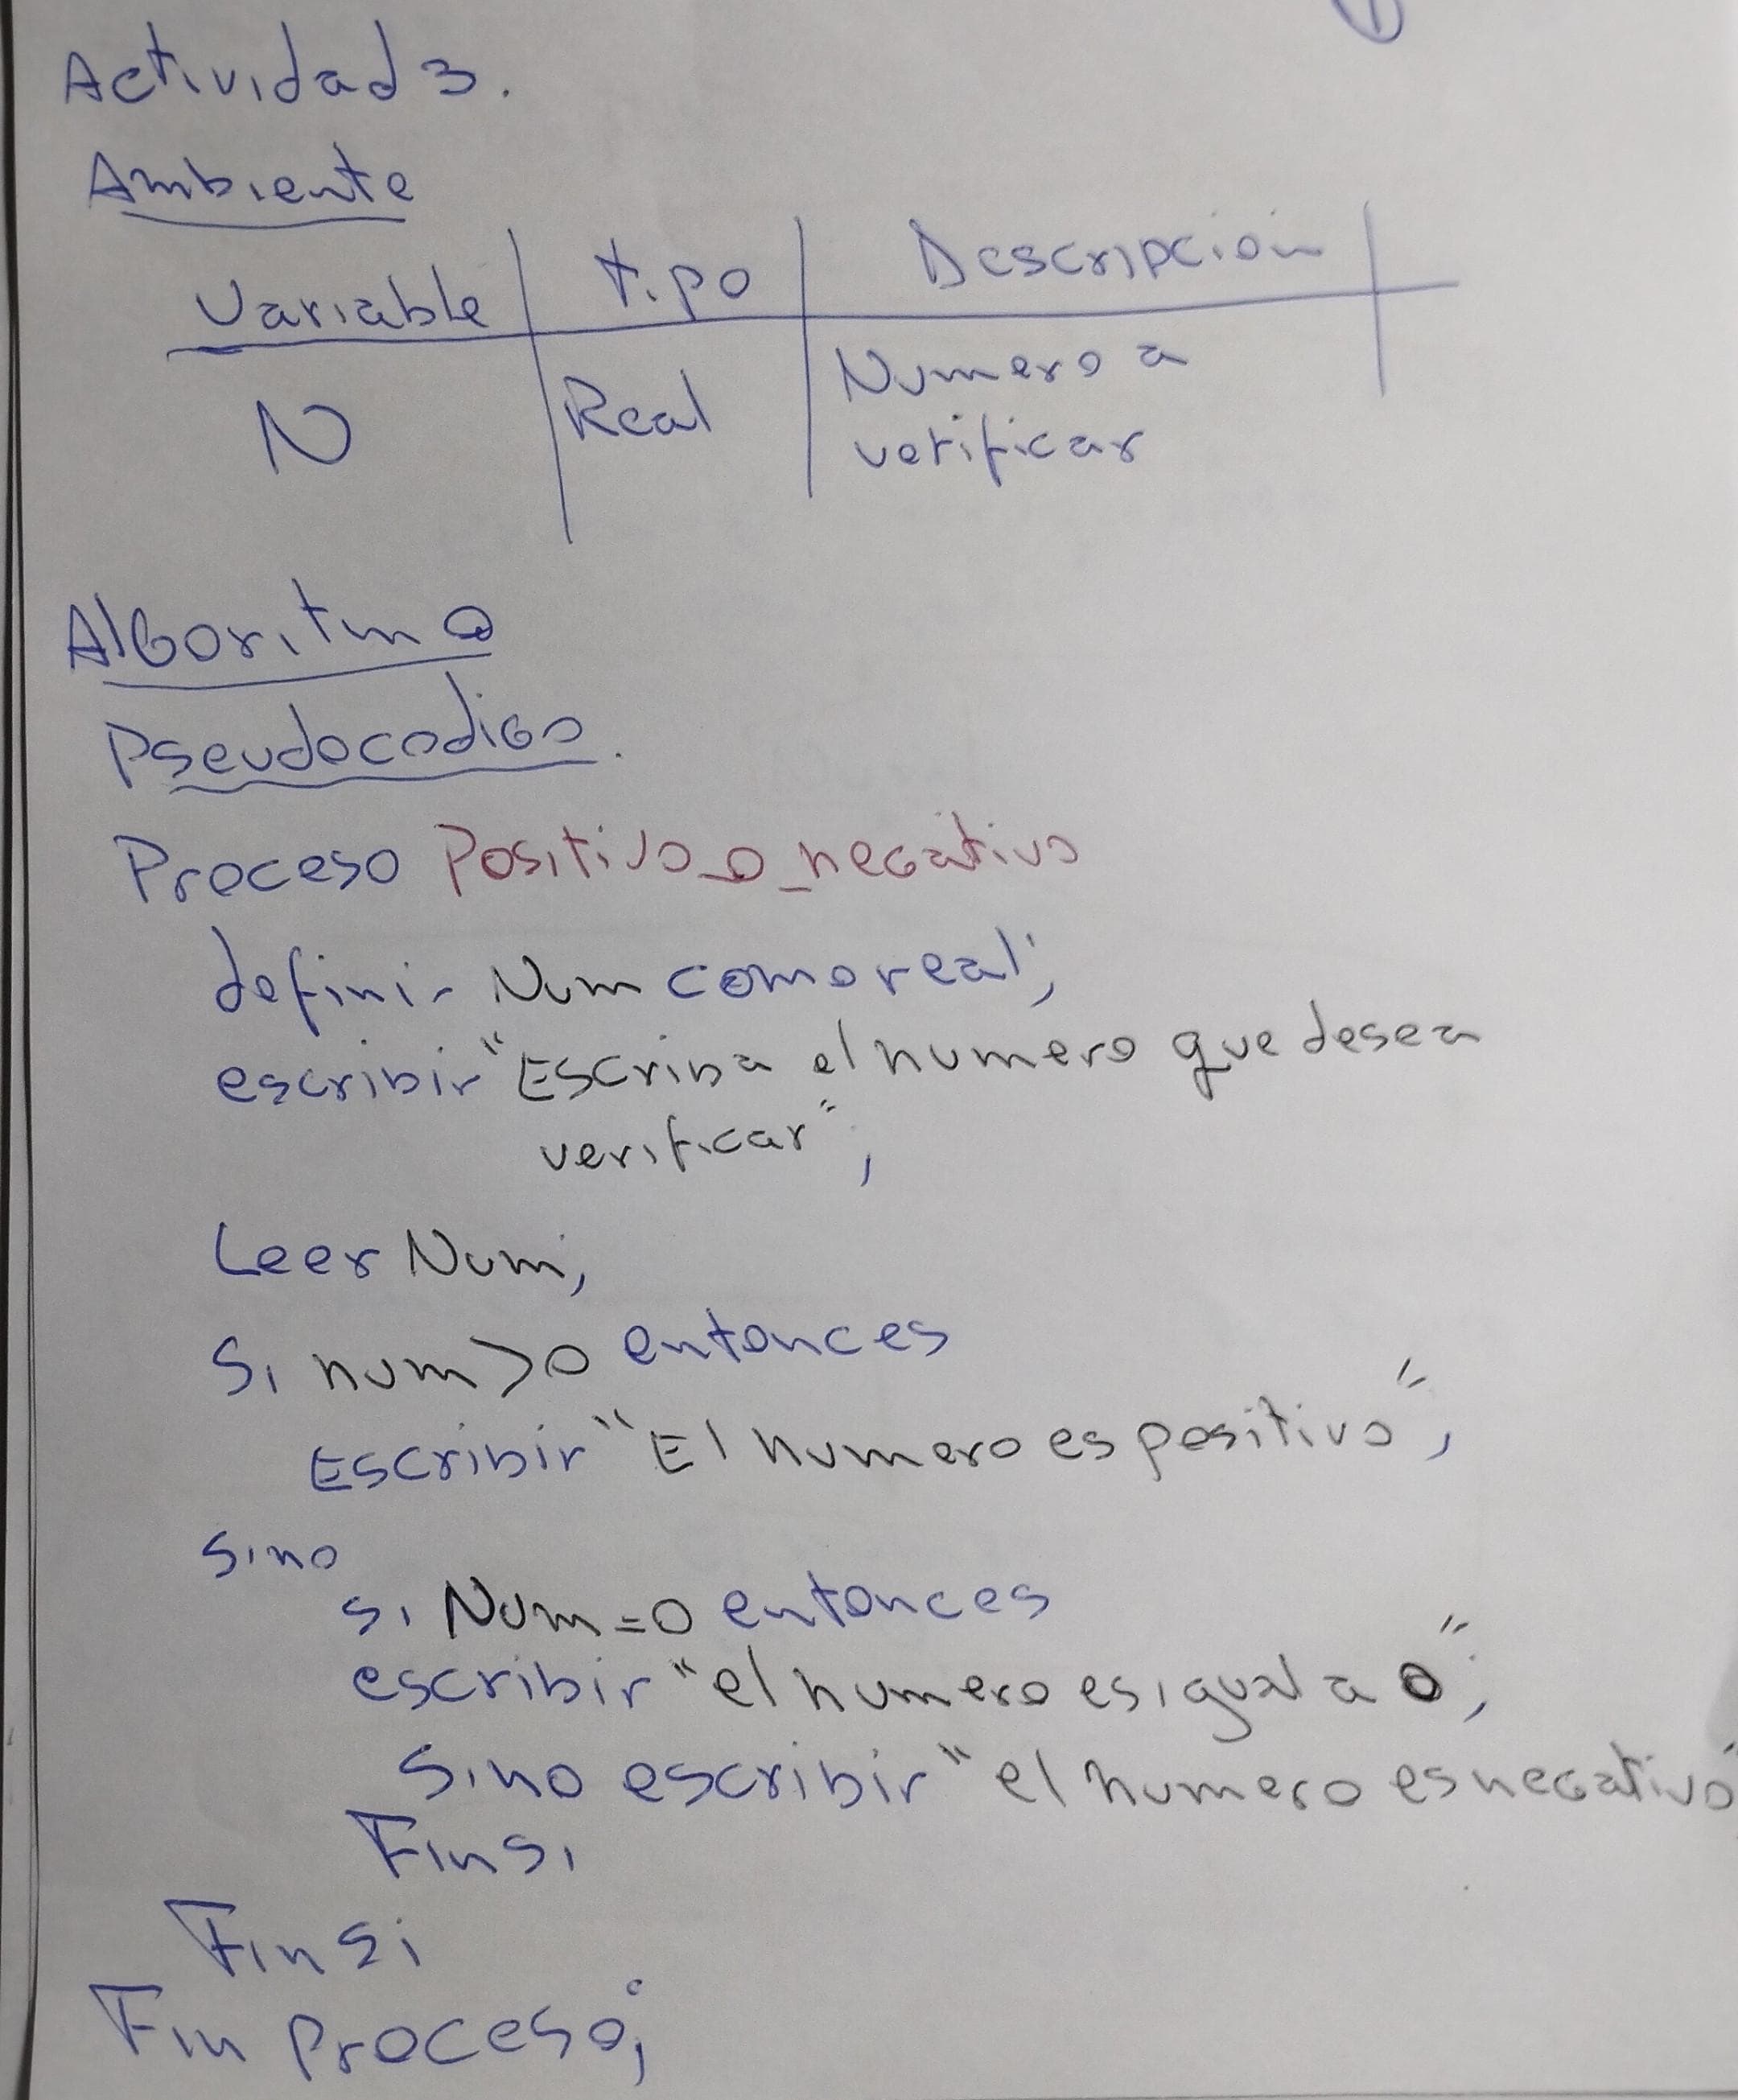 1
Actividad 3.
Ambiente
Variable tipo Descripcion
N Real Numero a
verificar
Algoritmo
Pseudocodigo.
Proceso Positivo_o_negativo
definir Num como real;
escribir "Escriba el numero que desea
verificar";
Leer Num;
Si num>0 entonces
Escribir "El numero es positivo";
sino
si Num=0 entonces
escribir "el numero es igual a 0";
Sino escribir "el numero es negativo"
Finsi
Finsi
Fin proceso;